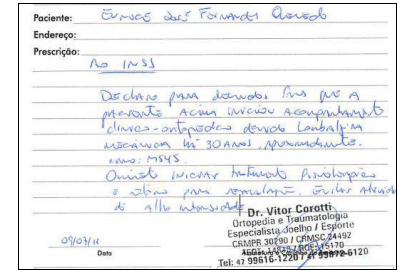 Paciente: Eunice dos Fernandes
Endereço:
Prescrição:
Ao INSS
Declaro para devidos fins que a
paciente acima iniciou acompanhamento
clínico-ortopédico devido lombalgia
mecânica há 30 anos, aproximadamente.
Oriento iniciar tratamento fisioterápico
e retorno para reavaliação. Evitar atividade
de alta intensidade
Dr. Vitor Corotti
Ortopedia e Traumatologia
Especialista Joelho / Esporte
CRMPR 30290 / CRMSC 24492
Data
Tel: 47 99616-1220 / 47